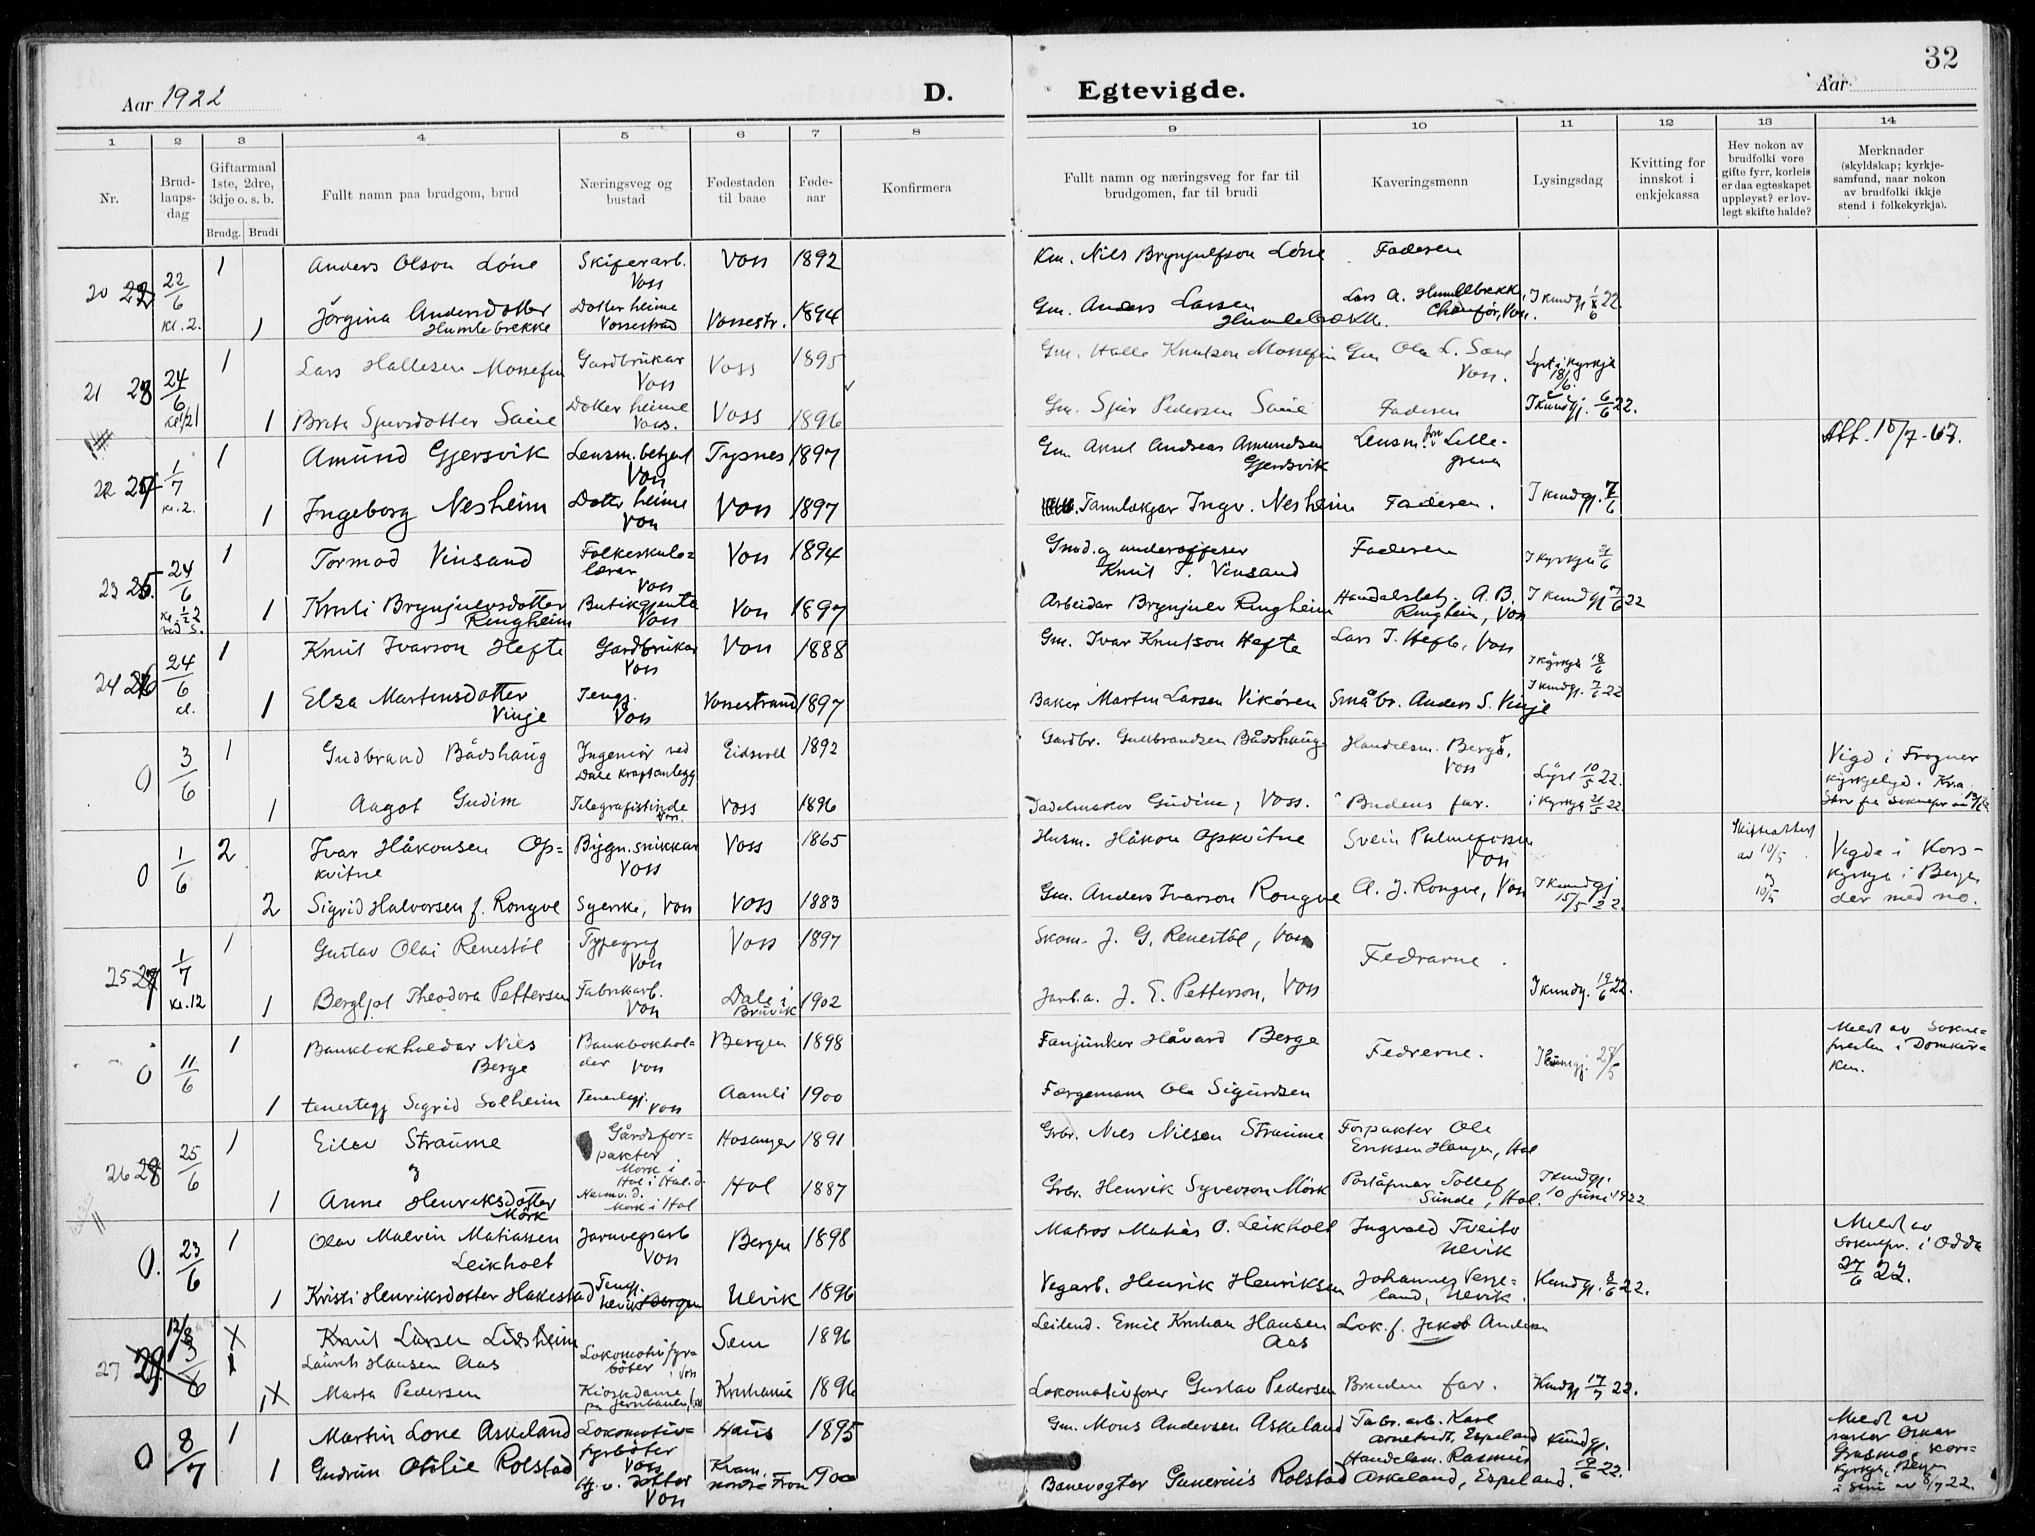 Aar 1922 D. Egtevigde. Aar 32
1 2 3 4 5 6 7 8 9 10 11 12 13 14
Nr.
Brudlaupsdag
Giftarmaal 1ste, 2dre, 3dje o. s. b.
Brudg. Brudi
Fullt namn paa brudgom, brud
Næringsveg og bustad
Fødestaden til baae
Føde-aar
Konfirmera
Fullt namn og næringsveg for far til brudgomen, far til brudi
Kaveringsmenn
Lysingsdag
Kvitting for innskot i enkjekassa
Hev nokon av brudfolki vore gifte fyrr, korleis er daa egteskapet uppløyst? er lovlegt skifte halde?
Merknader (skyldskap; kyrkjesamfund, naar nokon av brudfolki ikkje stend i folkekyrkja).
20 22/6 kl. 2. 1 Anders Olson Løne Skiferarb. Voss Voss 1892 Km. Nils Brynjulfson Løne Faderen
1 Jørgina Andersdotter Humlebrekke Dotter heime Vossestrand Vossestr. 1894 Gm. Anders Larsen Humlebrekke. Lars A. Humlebrekke, Chauffør, Voss.
21 24/6 1 Lars Hallesen Mossefin Gardbrukar Voss Voss 1895 Gm. Halle Knutson Mossefin Gm. Ola L. Saue Voss. Lyst i kyrkja 18/6.
1 Brita Sjursdotter Saue Dotter heime Voss. Voss 1896 Gm. Sjur Pedersen Saue Faderen I kundgj. 6/6 22.
22 1/7 kl. 2. 1 Amund Gjersvik Lensm.betjent Voss Tysnes 1897 Gm. Aksel Andreas Amundsen Gjersvik Lensm. Lillegraven Att. 10/7-67.
1 Ingeborg Nesheim Dotter heime Voss Voss 1897 Tannlækjar Ingv. Nesheim Faderen. I kundgj. 7/6
23 24/6 1 Tormod Vinsand Folkeskulelærar Voss Voss 1894 Gmd. og underofficer Knut T. Vinsand Faderen I kyrkja
1 Kruli Brynjulvsdotter Ringheim Butikgjenta Voss Voss 1897 Arbeidar Brynjulv Ringheim Handelsbetj. A. B. Ringheim, Voss I kundgj 7/6 22
24 24/6 kl. 1 Knut Ivarson Hefte Gardbrukar Voss Voss 1888 Gm. Ivar Knutson Hefte Lars I. Hefte, Voss I kyrkja 18/6
1 Elsa Martinsdotter Vinje Teng. Voss Vossestrand 1897 Baker Martin Larsen Vikøren Småbr. Anders S. Vinje I kundgj. 7/6 22
0 3/6 1 Gudbrand Bådshaug Ingeniør ved Dale kraftanlegg Eidsvoll 1892 Gardbr. Gullbrandsen Bådshaug Handelsm. Bergo, Voss Lyst 10/5 22. Vigd i Frogner kyrkjelyd. Kr.a
1 Aagot Gudim Telegrafistinde Voss. Voss 1896 Sadelmaker Gudim, Voss. Brudens far. i kyrkja 21/5 22
0 1/6 2 Ivar Håkonsen Opkvitne Bygn.snikkar Voss Voss 1865 Husm. Håkon Opkvitne Svein Palmafossen Voss Skifteattest av 10/5 Vigde i Korskyrkja i Bergen
2 Sigrid Halvorsen f. Rongve Syerske, Voss Voss 1883 Gm. Anders Ivarson Rongve A. J. Rongve, Voss I kundgj 15/5 22. og 10/5 der med no.
25 1/7 kl. 12 1 Gustav Olai Renestøl Typograf Voss Voss 1897 Skom. J. G. Renestøl, Voss Fedrarne.
1 Bergljot Theodora Pettersen Fabrikarb. Voss Dale i Bruvik 1902 Jarb.a. J. E. Petterson, Voss I kundg. 19/6 22.
0 11/6 1 Bankbokholdar Nils Berge Bankbokholder Voss Bergen 1898 Fanjunker Håvard Berge Fedrerne. Meldt av Soknepresten i Domkirken.
1 tenestegj Sigrid Solheim Tenestegj. Voss Aamli 1900 Færgemann Ola Sigurdsen
26 25/6 1 Eilev Straume Gårdsforpakter Mørk i Hol i Hal.d. Hosanger 1891 Grbr. Nils Nilsen Straume Forpakter Ole Eriksen Haugen, Hol
og
1 Anne Henriksdotter Mørk Heimv.d. Mørk i Hol Hol 1887 Grbr. Henrik Syverson Mörk Tollef Sunde, Hol. I kundgj. 10 juni 1922
0. 23/6 1 Olav Malvin Matiassen Leikholt Jarnvegsarb Voss Bergen 1898 Matros Matias O. Leikholt Ingvald Tveito Ulvik Meldt av soknepr. i Odda 27/6 22.
1 Kristi Henriksdotter Hakestad Teng. Ulvik Bergen Ulvik 1896 Vegarb. Henrik Henriksen Johannes Verpeland, Ulvik. Kundgj. 8/6 22.
27 12/8 Knut Larsen Lidsheim
Laurits Hansen Aas Lokomotivfyrbøter i Voss Sem 1896 Leilend. Emil Kristian Hansen Aas Lok.f. Jakob Andersen
1 Marta Pedersen Kioskdame på jernbanen Kristiania 1896 Lokomotivfører Gustav Pedersen Bruden far. Kundgj 17/7 22.
0 8/7 1 Martin Lone Askeland Lokomotivfyrbøter Voss Haus 1895 Gm. Mons Andersen Askeland Fabr.arb. Karl Arnetvedt, Espeland Kundgj. 19/6 22. Meldt av pastor Oskar Grasmo, Korskyrkja, Bergen
1 Gudrun Otilie Rolstad Hj.v. dotter Voss Kvam, nordre Fron 1900 Banevogter Rolstad Handelsm. Rasmus Askeland, Espeland.